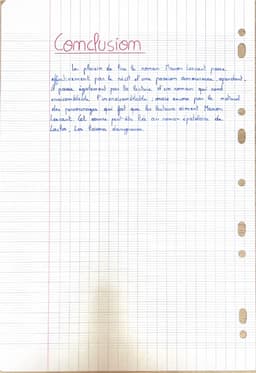 Conclusion
Le plaisir de lire le roman Manon Lescaut passe
effectivement par le récit d'une passion amoureuse, cependant,
il passe également par la lecture d'un roman qui rend
vraissemblable l'invraissemblable ; mais encore par le
des personnages qui fait que les lecteurs aiment Manon
Lescaut. Cet oeuvre peut-être lié au roman épistolaire de
Laclos, Les liaisons dangereuses.